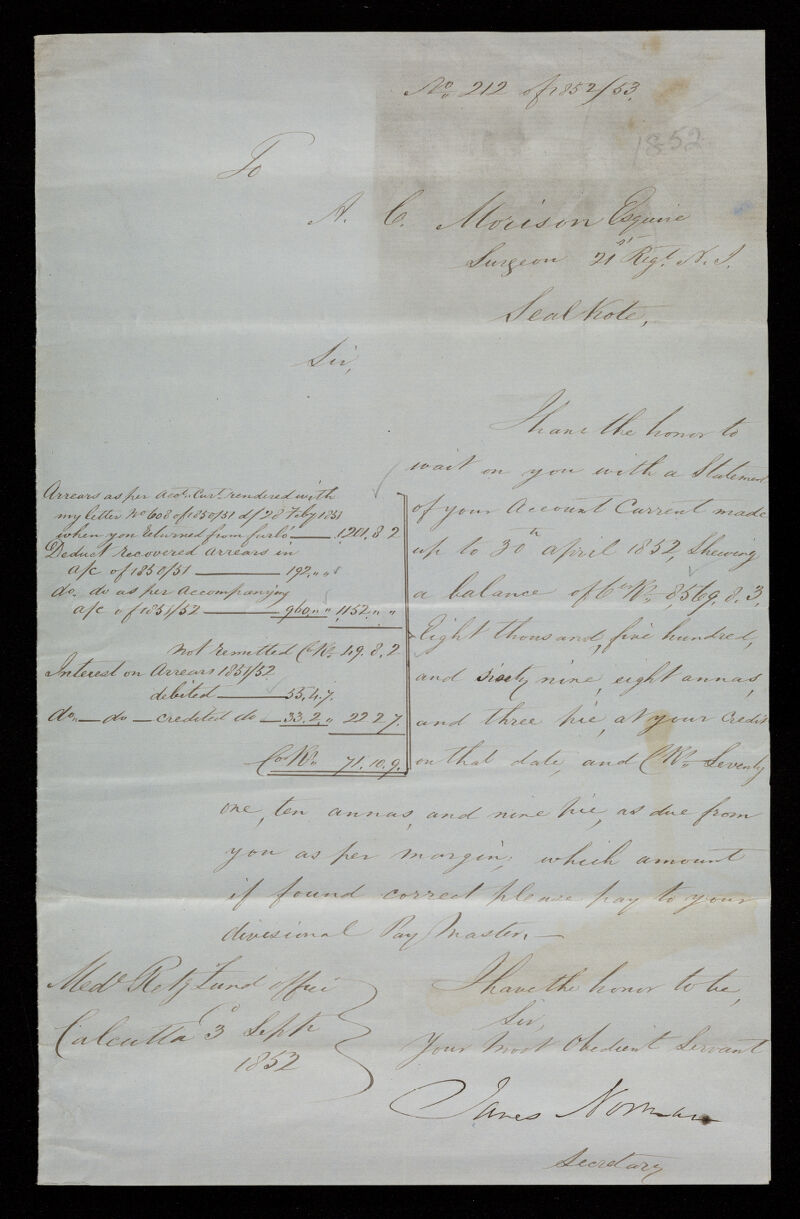 No 212 of 1852/53.
1852
To
A. C. Morison Esquire
Surgeon 21st Regt. N. I.
Seal Kote,
Sir,
I have the honor to
wait on you with a Statement
of your Account Current made
up to 30th April 1852, Shewing
a balance of Cos Rs. 8,569. 8. 3,
Eight thousand, five hundred,
and sixty nine, eight annas,
and three pie, at your Credit
on that date, and CRs. Seventy
one, ten annas, and nine pie, as due from
you as per margin; which amount
if found correct please pay to your
divisional Pay Master.—
Arrears as per Acct. Curt. rendered with
my letter No 608 of 1850/51 d/ 28 Feby 1851
when you returned from furlo — 1201. 8. 2
Deduct recovered arrears in
a/c of 1850/51 — 192. " "
do. do as per Accompanying
a/c of 1851/52 — 960. " " 1152. " "
Not remitted CRs. 49. 8. 2
Interest on Arrears 1851/52
debited — 55. 4. 7.
do. — do — credited do — 33. 2. " 22. 2. 7.
Cos Rs. 71. 10. 9.
I have the honor to be,
Sir,
Your Most Obedient Servant
James Norman
Secretary
Medl. Retg Fund Office
Calcutta 3 Septr
1852